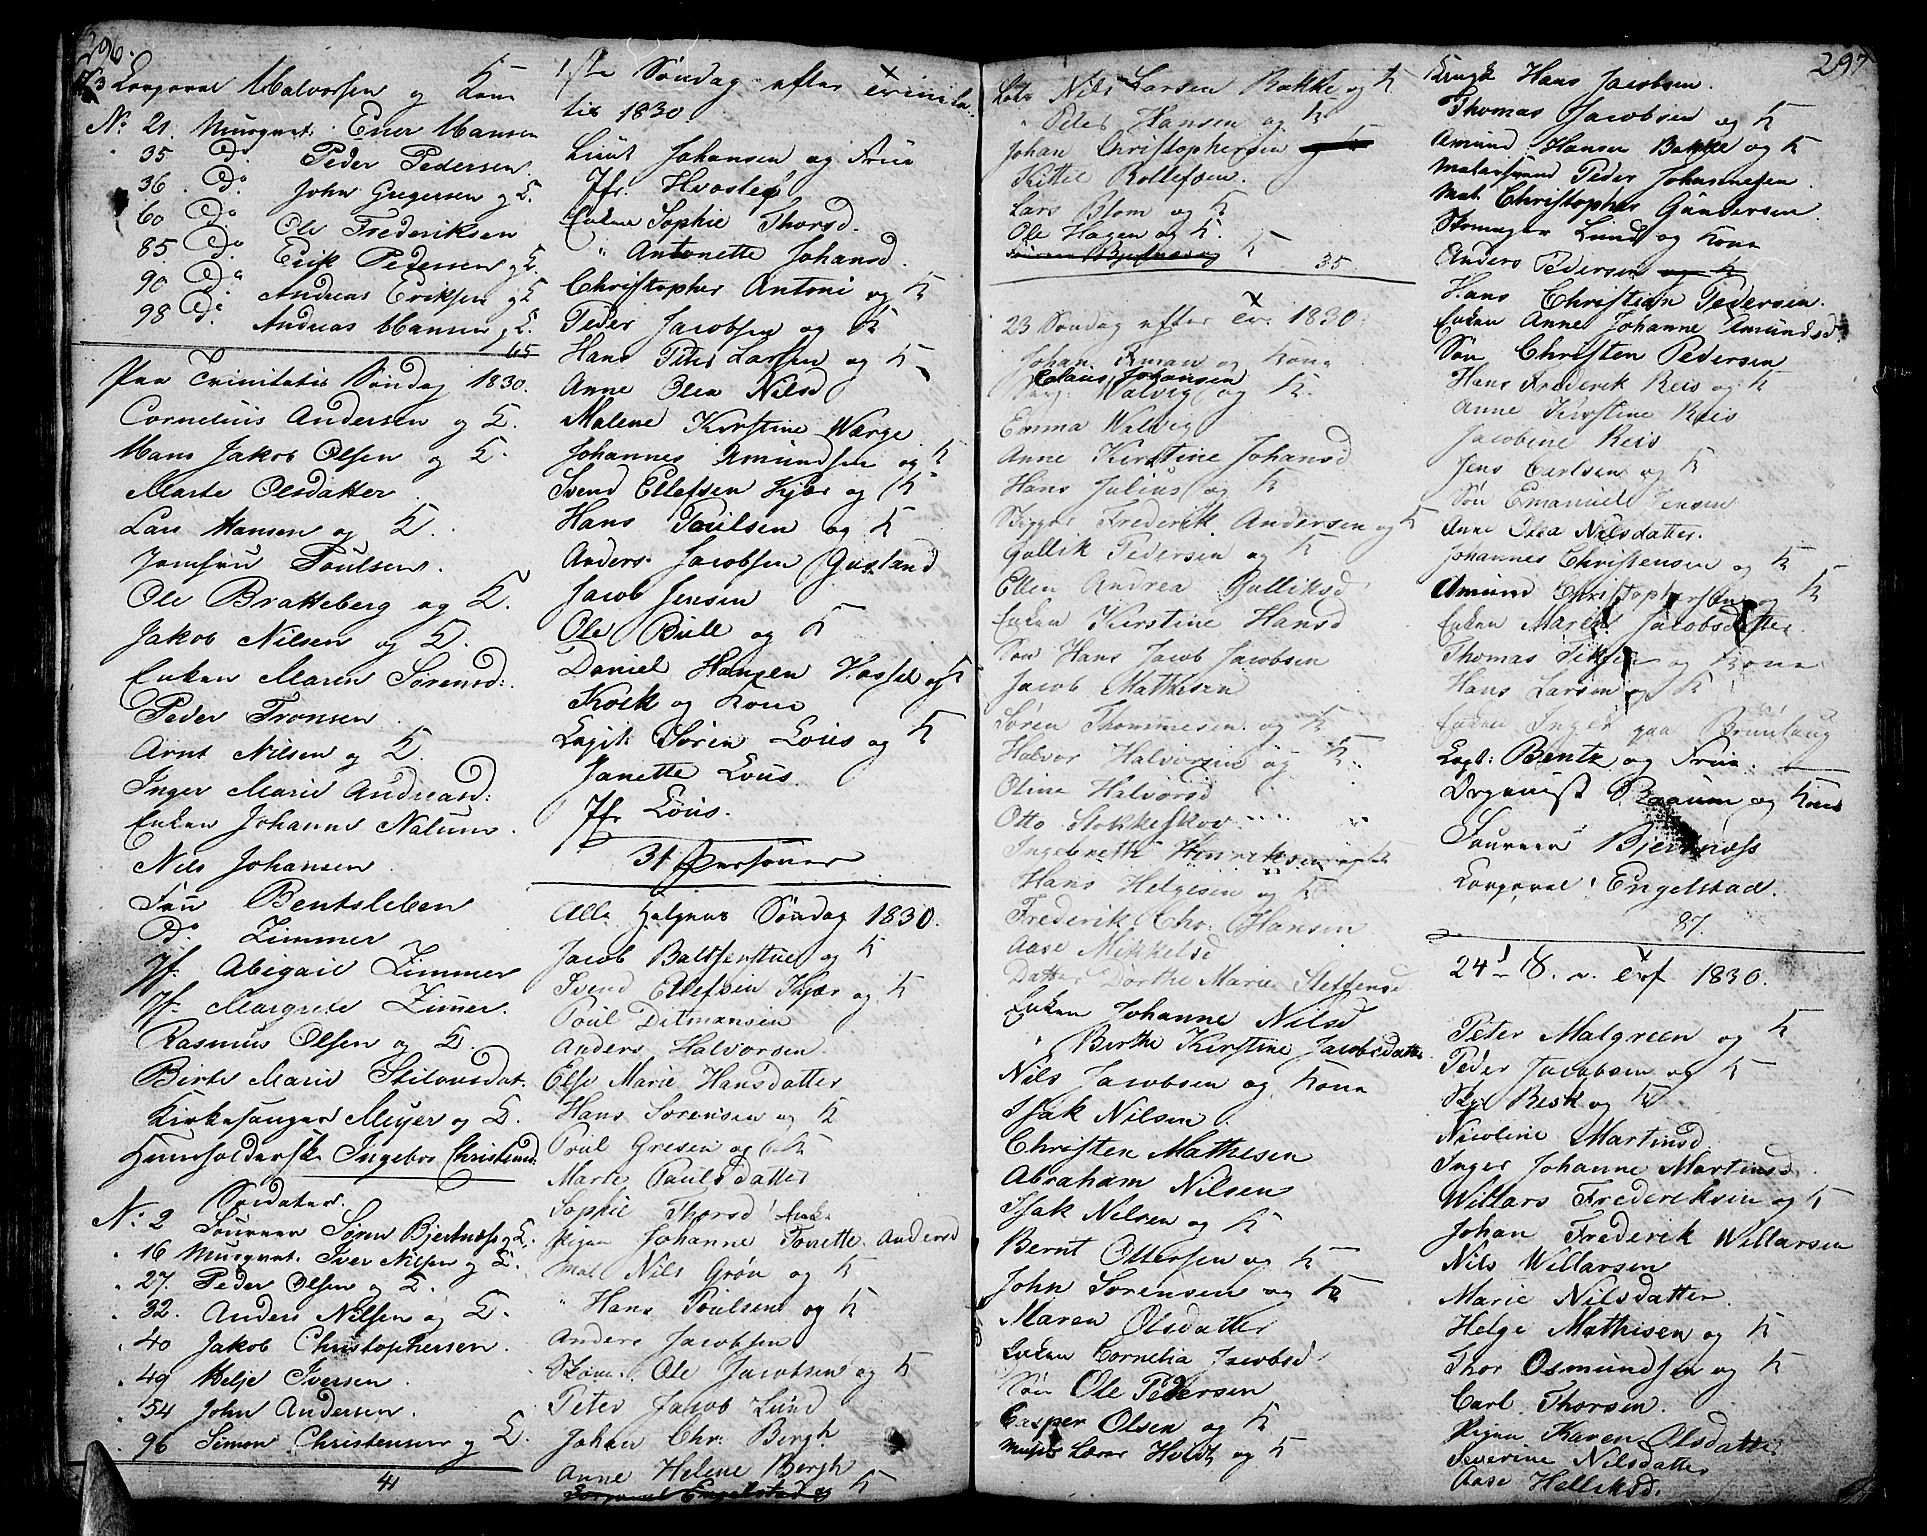 296.
Corporal Halvorsen og Kone
No 21. Musquet. Ener Hansen
35 Do Peder Pedersen
36. Do John Gregersen og K.
60 Do Ole Frederiksen
85 Do Erik Pedersen og K.
90 Do Andreas Eriksen og K
98 Do Andreas Hansen og K.
65
Paa Trinitatis Søndag 1830.
Cornelius Andersen og K.
Hans Jakob Olsen og K.
Marte Olsdatter
Lars Hansen og K.
Jomfru Poulsen.
Ole Bratteberg og K.
Jakob Nilsen og K.
Enken Maren Sørensd:
Peder Tronsen
Arnt Nilsen og K.
Inger Marie Andreasd:
Enken Johanne Nalum.
Nils Johansen
Fru Bentsleben
Do Zimmer
Jf. Abigail Zimmer
Jf. Margrete Zimer.
Rasmus Olsen og K.
Birte Marie
Kirkesanger Meyer og K.
Ingebor Christensd:
Soldater.
No 2 Foureer Søren Bjertnæss og K.
16 Musquet. Iver Nilsen og K.
27. Peder Olsen og K.
32. Anders Nilsen og K.
40 Jakob Christophersen.
49 Helje Iversen.
54 John Andersen.
96 Simon Christensen og K.
41
1ste Søndag efter Trinita-
tis 1830.
Lieut Johansen og Frue
Jfr. Hvoslef
Enken Sophie Thorsd.
" Antonette Johansd.
Christopher Antoni og K
Peder Jacobsen og K
Hans Peter Larsen og K
Anne Olea Nilsd
Malene Kirstine Warge
Johannes Amundsen og K
Svend Ellefsen Kjær og K
Hans Poulsen og K
Anders Jacobsen Gusland
Jacob Jensen
Ole Bull og K
Daniel Hansen Hassel og K
Kock og Kone
Capit: Søren Lous og K
Janette Lous.
Jfr Lous.
31 Personer
Alle Helgens Søndag 1830.
Jacob og K
Svend Ellefsen Kjær og K
Poul Ditmansen
Anders Halvorsen.
Else Marie Hansdatter
Hans Sørensen og K
Poul Gresen og K
Marte Poulsdatter
Sophie Thorsd Enke
Pigen Johanne Tonette Andersd
Mat. Nils Grøn og K
" Hans Poulsen og K
Anders Jacobsen
Ole Jacobsen og K
Peter Jacob Lund
Johan Chr. Bergh
Anne Helene Bergh
Corporal Engelstad og K
297
Lods Nils Larsen Bakke og K
" Peter Hansen og K
Johan Christophersen og K
Kittil Rollefsen.
Lars Blom og K.
Ole Hagen og K.
Foureer Bjertnæs og K
35.
23 Søndag efter Tr. 1830.
Johan og Kone
Claus Johansen
Walvig og K.
Emma Walvig
Anne Kirstine Johansd
Hans Julius og K
Skipper Frederik Andersen og K
Gullik Pedersen og K
Ellen Andrea Gulliksd
Enken Kirstine Hansd
Søn Hans Jacob Jacobsen
Jacob Mathisen
Søren Thommesen og K
Halvor Halvorsen og K.
Oline Halvorsd
Otto Stokkeskov
Ingebreth Henriksen og K
Hans Helgesen og K
Frederik Chr. Hansen
Aase Mikkelsd
Datter Dorthe Marie Steffensd
Enken Johanne Nilsd
" Birthe Kirstine Jacobsdatter
Nils Jacobsen og Kone
Isak Nilsen.
Christen Mathisen
Abraham Nilsen
Isak Nilsen og K
Bernt Ottersen og K
John Sørensen og K
Maren Olsdatter
Enken Cornelia Jacobsd
Søn Ole Pedersen
Casper Olsen og K
Holdt og K
Hans Jacobsen.
Thomas Jacobsen og K
Amund Hansen Bakke og K
Peder Johannesen
Mat. Christopher Gundersen
Skomager Lund og Kone
Anders Pedersen og K
Hans Christian Pedersen.
Enken Anne Johanne Amundsd
Søn Christen Pedersen
Hans Frederik Reis og K
Anne Kirstine Reis
Jacobine Reis
Jens Carlsen og K
Søn Emanuel Jensen
Anne Olea Nilsdatter.
Johannes Christensen og K
Amund Christophersen og K
Enken Maren Jacobsdatter
Thomas og Kone
Hans Larsen og K
Enken Inger paa Brunlaug
Capt: Bentz og Frue.
Organist Baaum og Kone
Foureer Bjertnæss
Corporal Engelstad.
87.
24d S. e. Tref 1830.
Peter Malgreen og K
Peder Jacobsen og K
Besk og K
Nicoline Martinsd
Inger Johanne Martinsd
Willars Frederiksen og K
Johan Frederik Willarsen
Nils Willarsen
Marie Nilsdatter
Helge Mathisen og K
Thor Osmundsen og K
Carl Thorsen.
Pigen Karen Olsdatter
Severine Nilsdatter
Aase Helliksd.